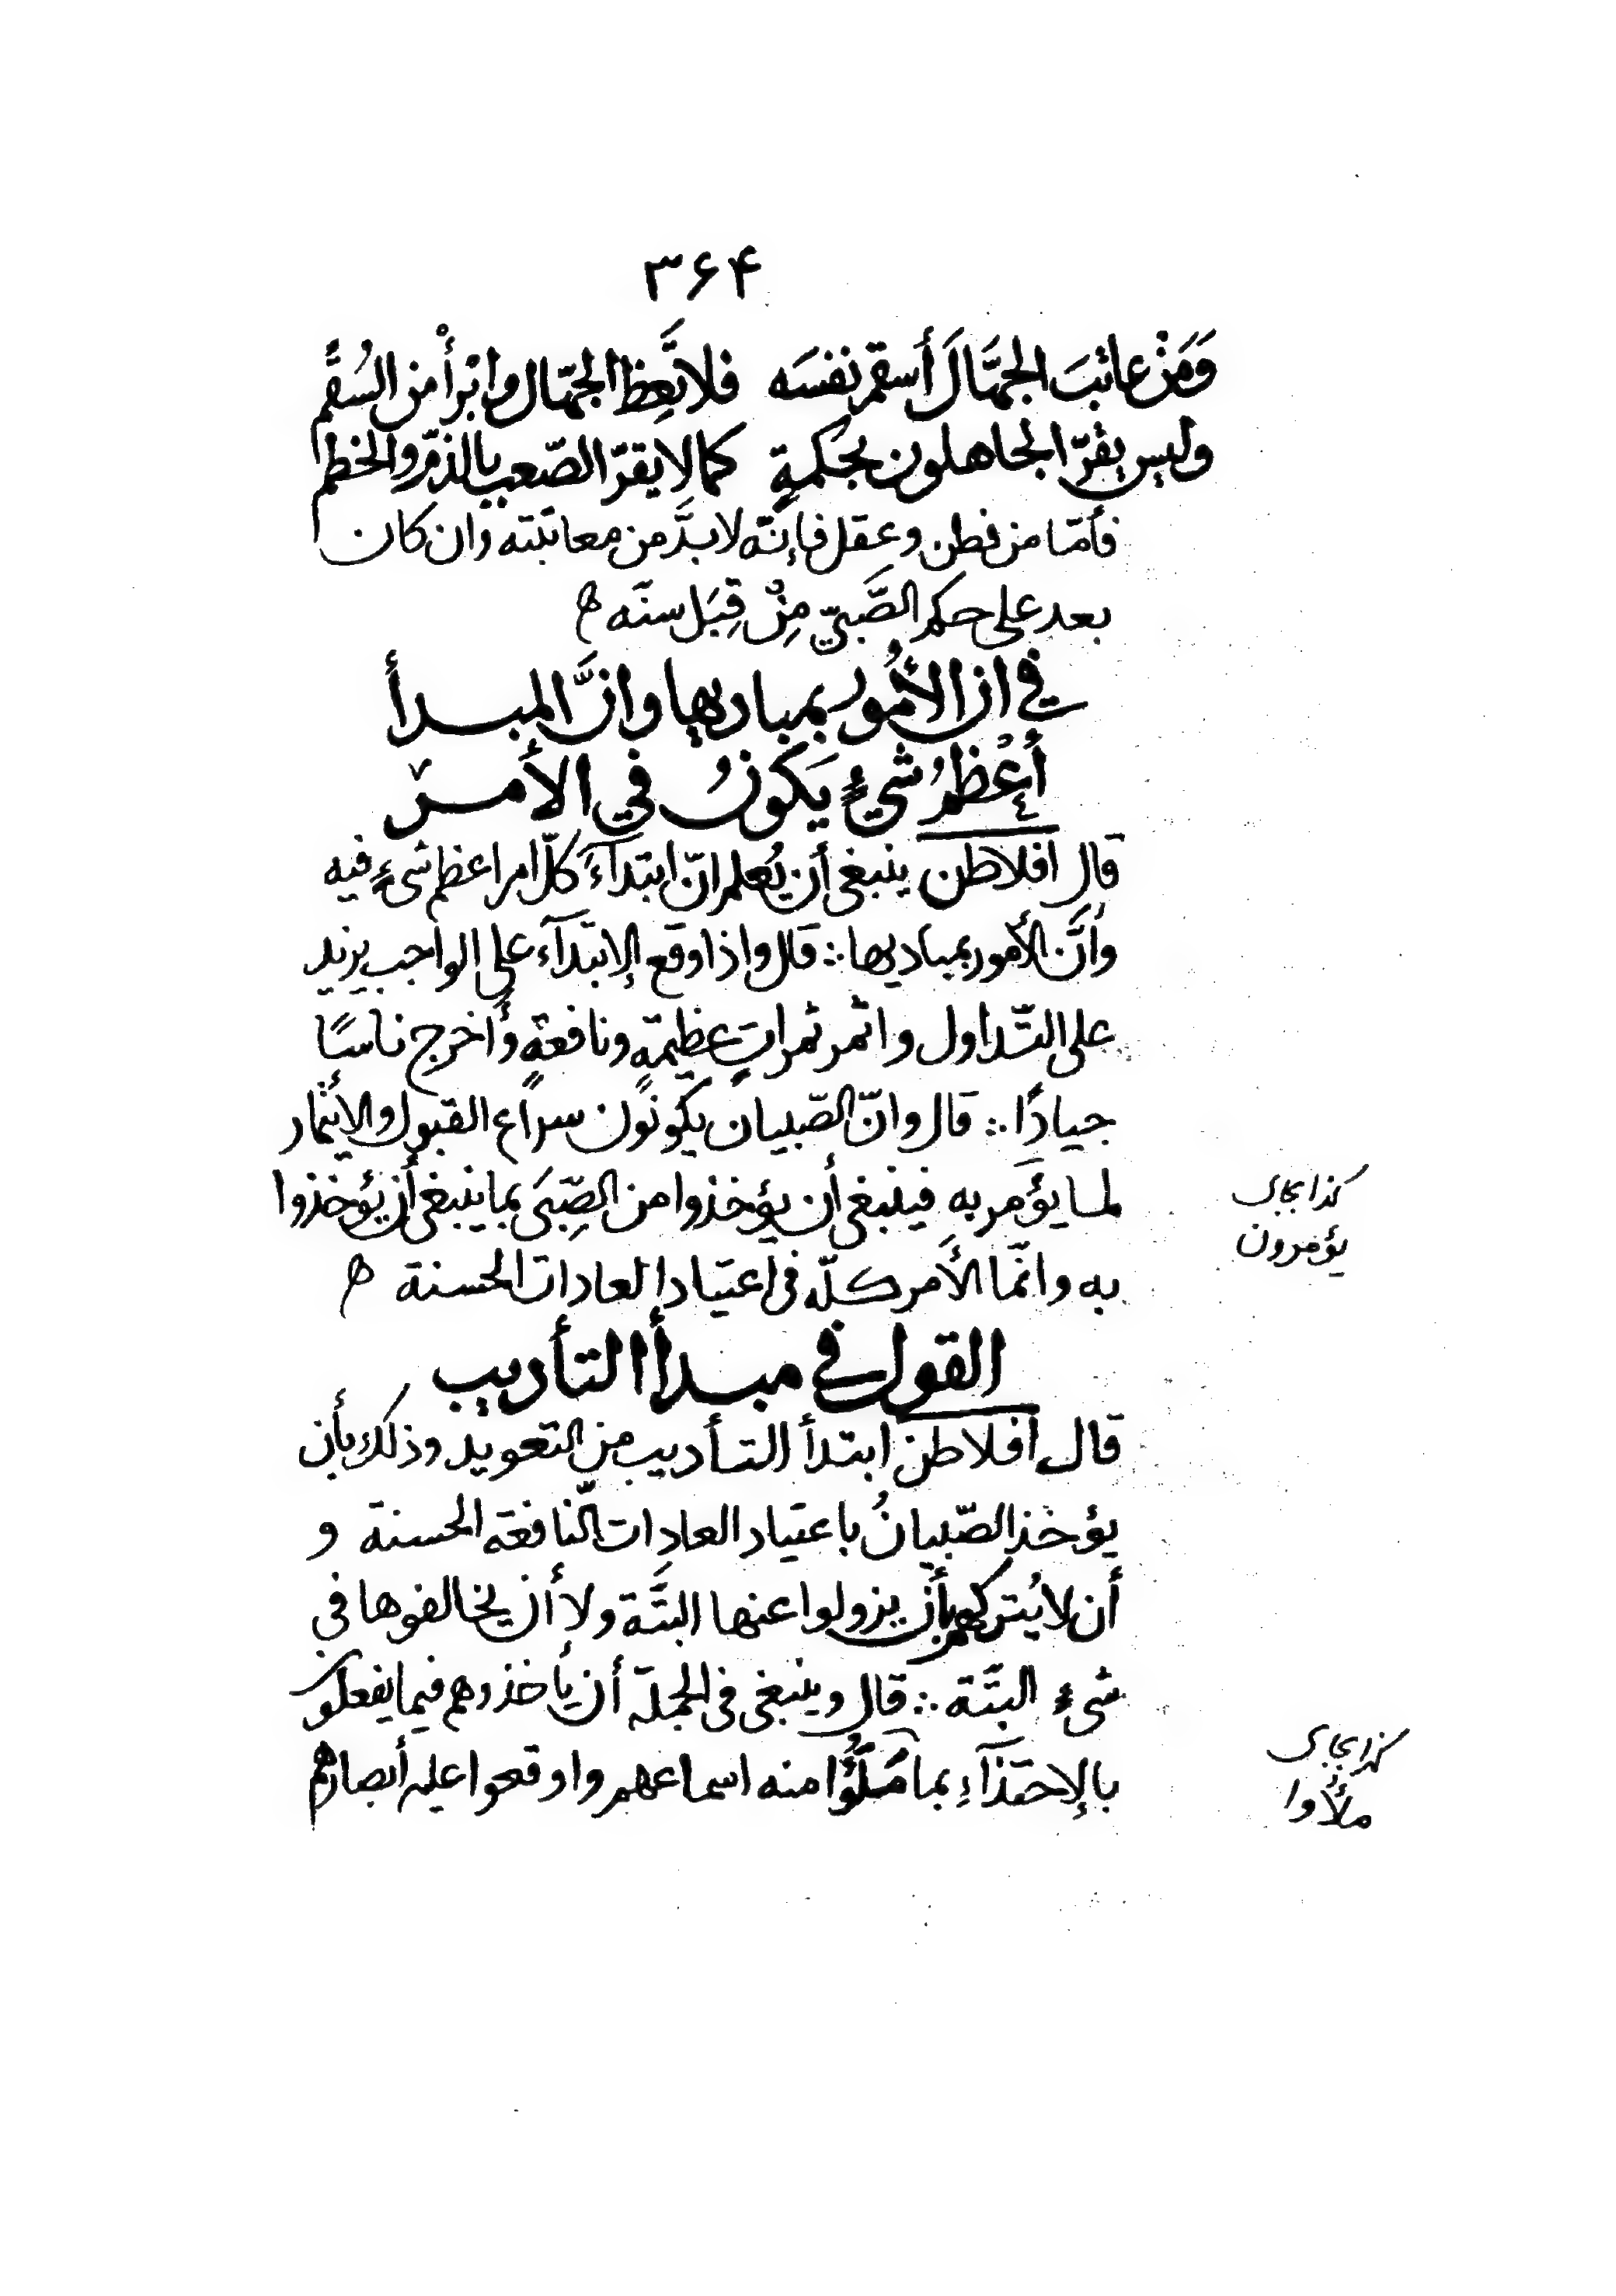 ۳۶۴
وَمَنْ عاتَبَ الجهَّالَ أسقم نفسَه فلا تَّعِظ الجهّال وابْرأْ من السُقمِ
وليس يقرّ الجاهلون بحكمةٍ كما لا يقرّ الصّعب بالذمّ والخطم
فأمّا من فطن وعقل فإنّه لا بدَّ من معاتبته وان كان
بعد على حكم الصَّبيّ مِنْ قِبَل سنّه ه
في ان الأمُور بمباديها وانَّ المبدأ
أعْظمُ شيءٍ يَكونُ في الأمر
قال افلاطن ينبغي أن يُعلم انّ ابتدآءَ كلّ امر اعظم شيءٍ فيه
وأنَّ الأمور بمباديها ∴ قال واذا وقع الإبتدآء على الواجب يزيد
على التّداول واثمر ثمراتٍ عظيمةٍ ونافعةٍ وأخرج ناسًا
جيادًا ∴ قال وانّ الصّبيان يكونون سراع القبول والإئتمار
لما يؤمر به فينبغي أن يؤخذوا من الصِّبَى بما ينبغي أن يؤخذوا
كذا بجاى
يؤمرون
به وانّما الأمر كلّه في اعتياد العادات الحسنة ه
القول في مبدأ التأديب
قال افلاطن ابتدأ التأديب من التعويد وذلك بأن
يؤخذ الصّبيانُ باعتياد العادات النّافعة الحسنة و
أن لا يُتركهم بأن يزولوا عنها البتَّة ولا أن يخالفوها في
شيءٍ البتَّة ∴ قال وينبغي في الجملة أن يأخذوهم فيما يفعلون
بالإحتذآءِ بما مَلَؤُا منه اسماعهم واوقعوا عليه أبصارهم
كذا بجاى
ملأوا